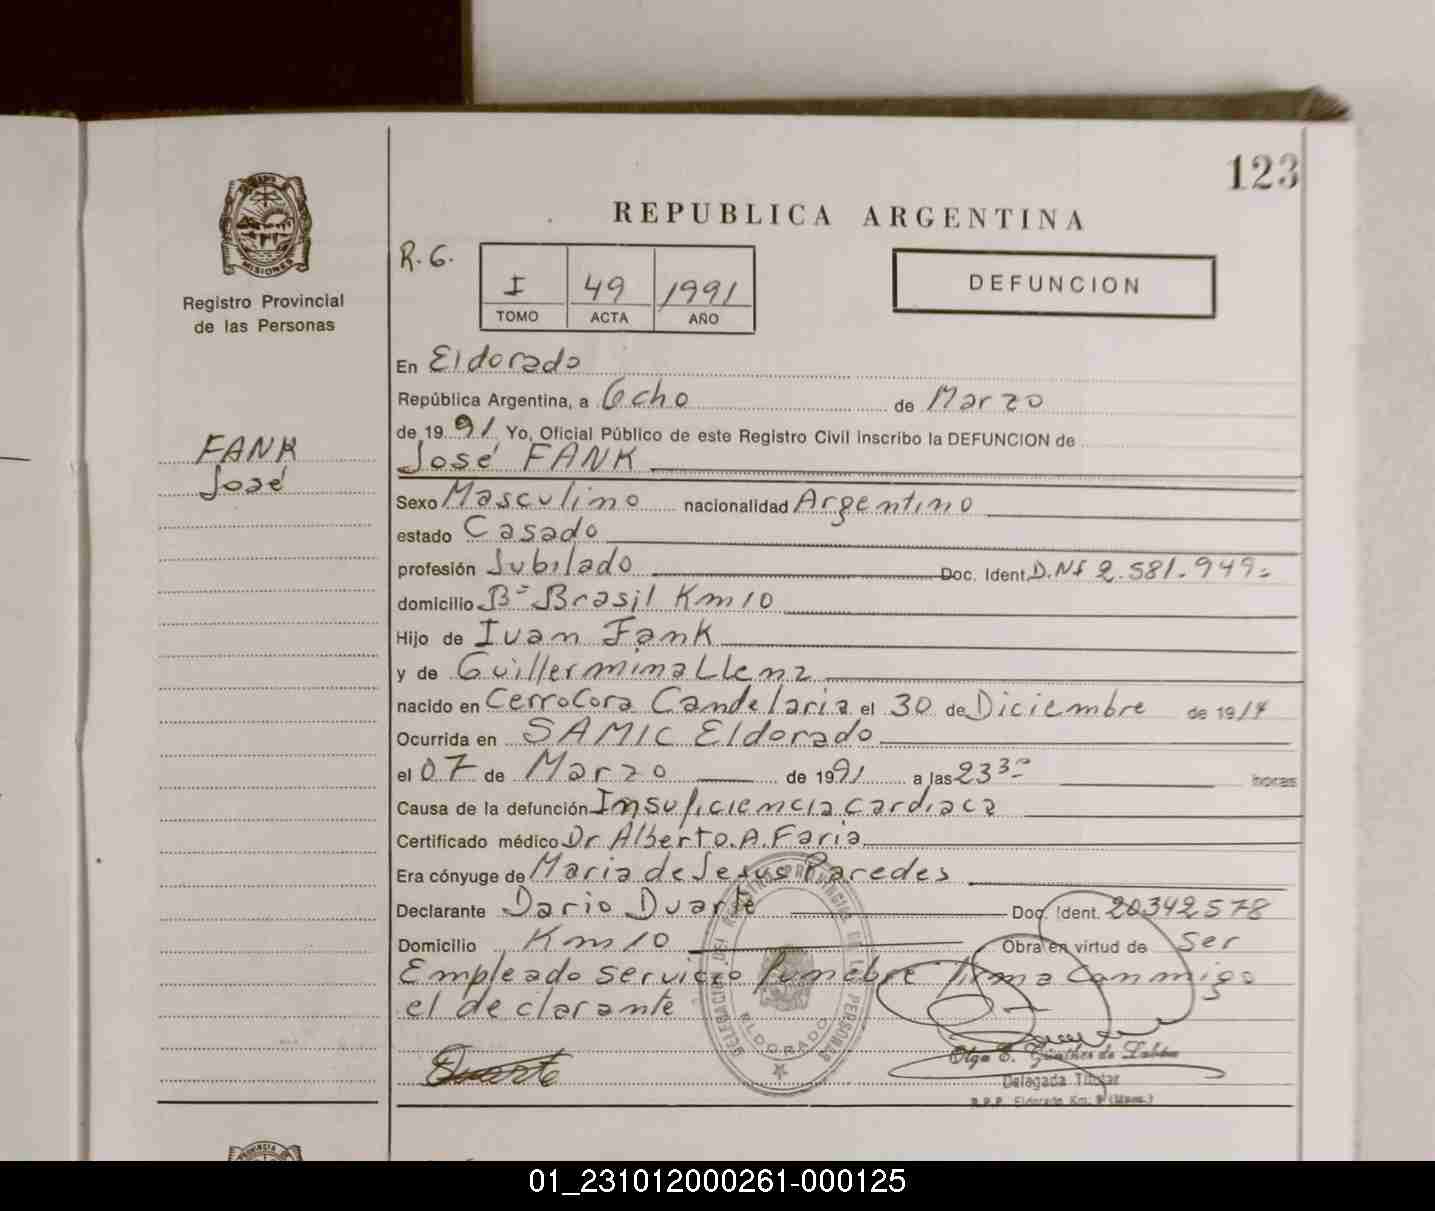 123
REPUBLICA ARGENTINA
MISIONES
Registro Provincial
de las Personas
R.G.
I 49 1991
TOMO ACTA AÑO
DEFUNCION
FANK
José
En Eldorado
República Argentina, a Ocho de Marzo
de 1991 Yo, Oficial Público de este Registro Civil inscribo la DEFUNCION de
José FANK
Sexo Masculino nacionalidad Argentino
estado Casado
profesión Jubilado Doc. Ident. D.NI 2.581.949
domicilio Bº Brasil Km 10
Hijo de Ivan Fank
y de Guillermina
nacido en Cerro Cora Candelaria el 30 de Diciembre de 1914
Ocurrida en SAMIC Eldorado
el 07 de Marzo de 1991 a las 23 30 horas
Causa de la defunción Insuficiencia cardiaca
Certificado médico Dr Alberto. A. Faria
Era cónyuge de Maria de Jesus Paredes
Declarante Dario Duarte Doc. Ident. 20342578
Domicilio Km 10 Obra en virtud de Ser
Empleado servicio funebre firma conmigo
el declarante
Duarte
DELEGACION DEL REGISTRO PROVINCIAL DE LAS PERSONAS
ELDORADO
Olga E. Günther de
Delegada Titular
R.P.P. Eldorado Km. 9 (Mnes.)
01_231012000261-000125